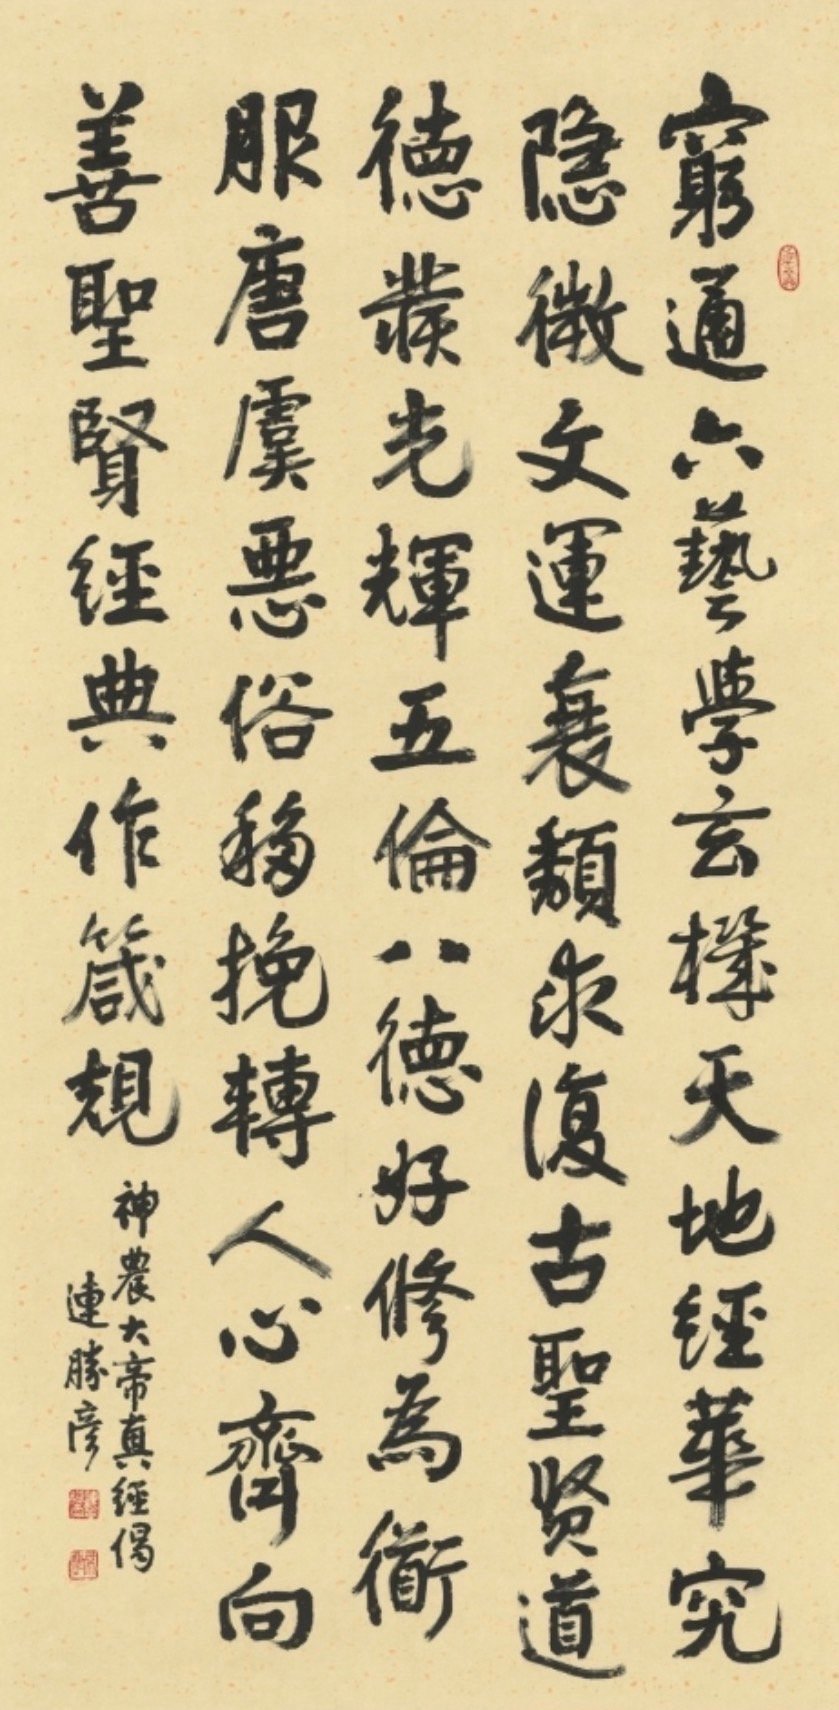 窮通六藝學玄機天地經華究
隱微文運衰頹求復古聖賢道
德發光輝五倫八德好修為衛
服唐虞惡俗移挽轉人心齊向
善聖賢經典作箴規
神農大帝真經偈
連勝彥